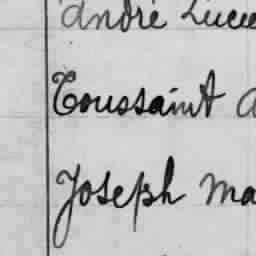 andré Lucie
Toussaint a
Joseph Ma